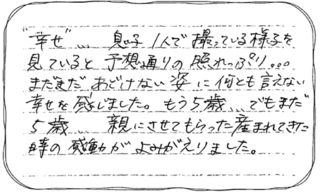 "幸せ"... 息子1人で撮っている様子を
見ていると予想通りの照れっぷり...
まだまだあどけない姿に何とも言えない
幸せを感じました。もう5歳...でもまだ
5歳... 親にさせてもらった産まれてきた
時の感動がよみがえりました。